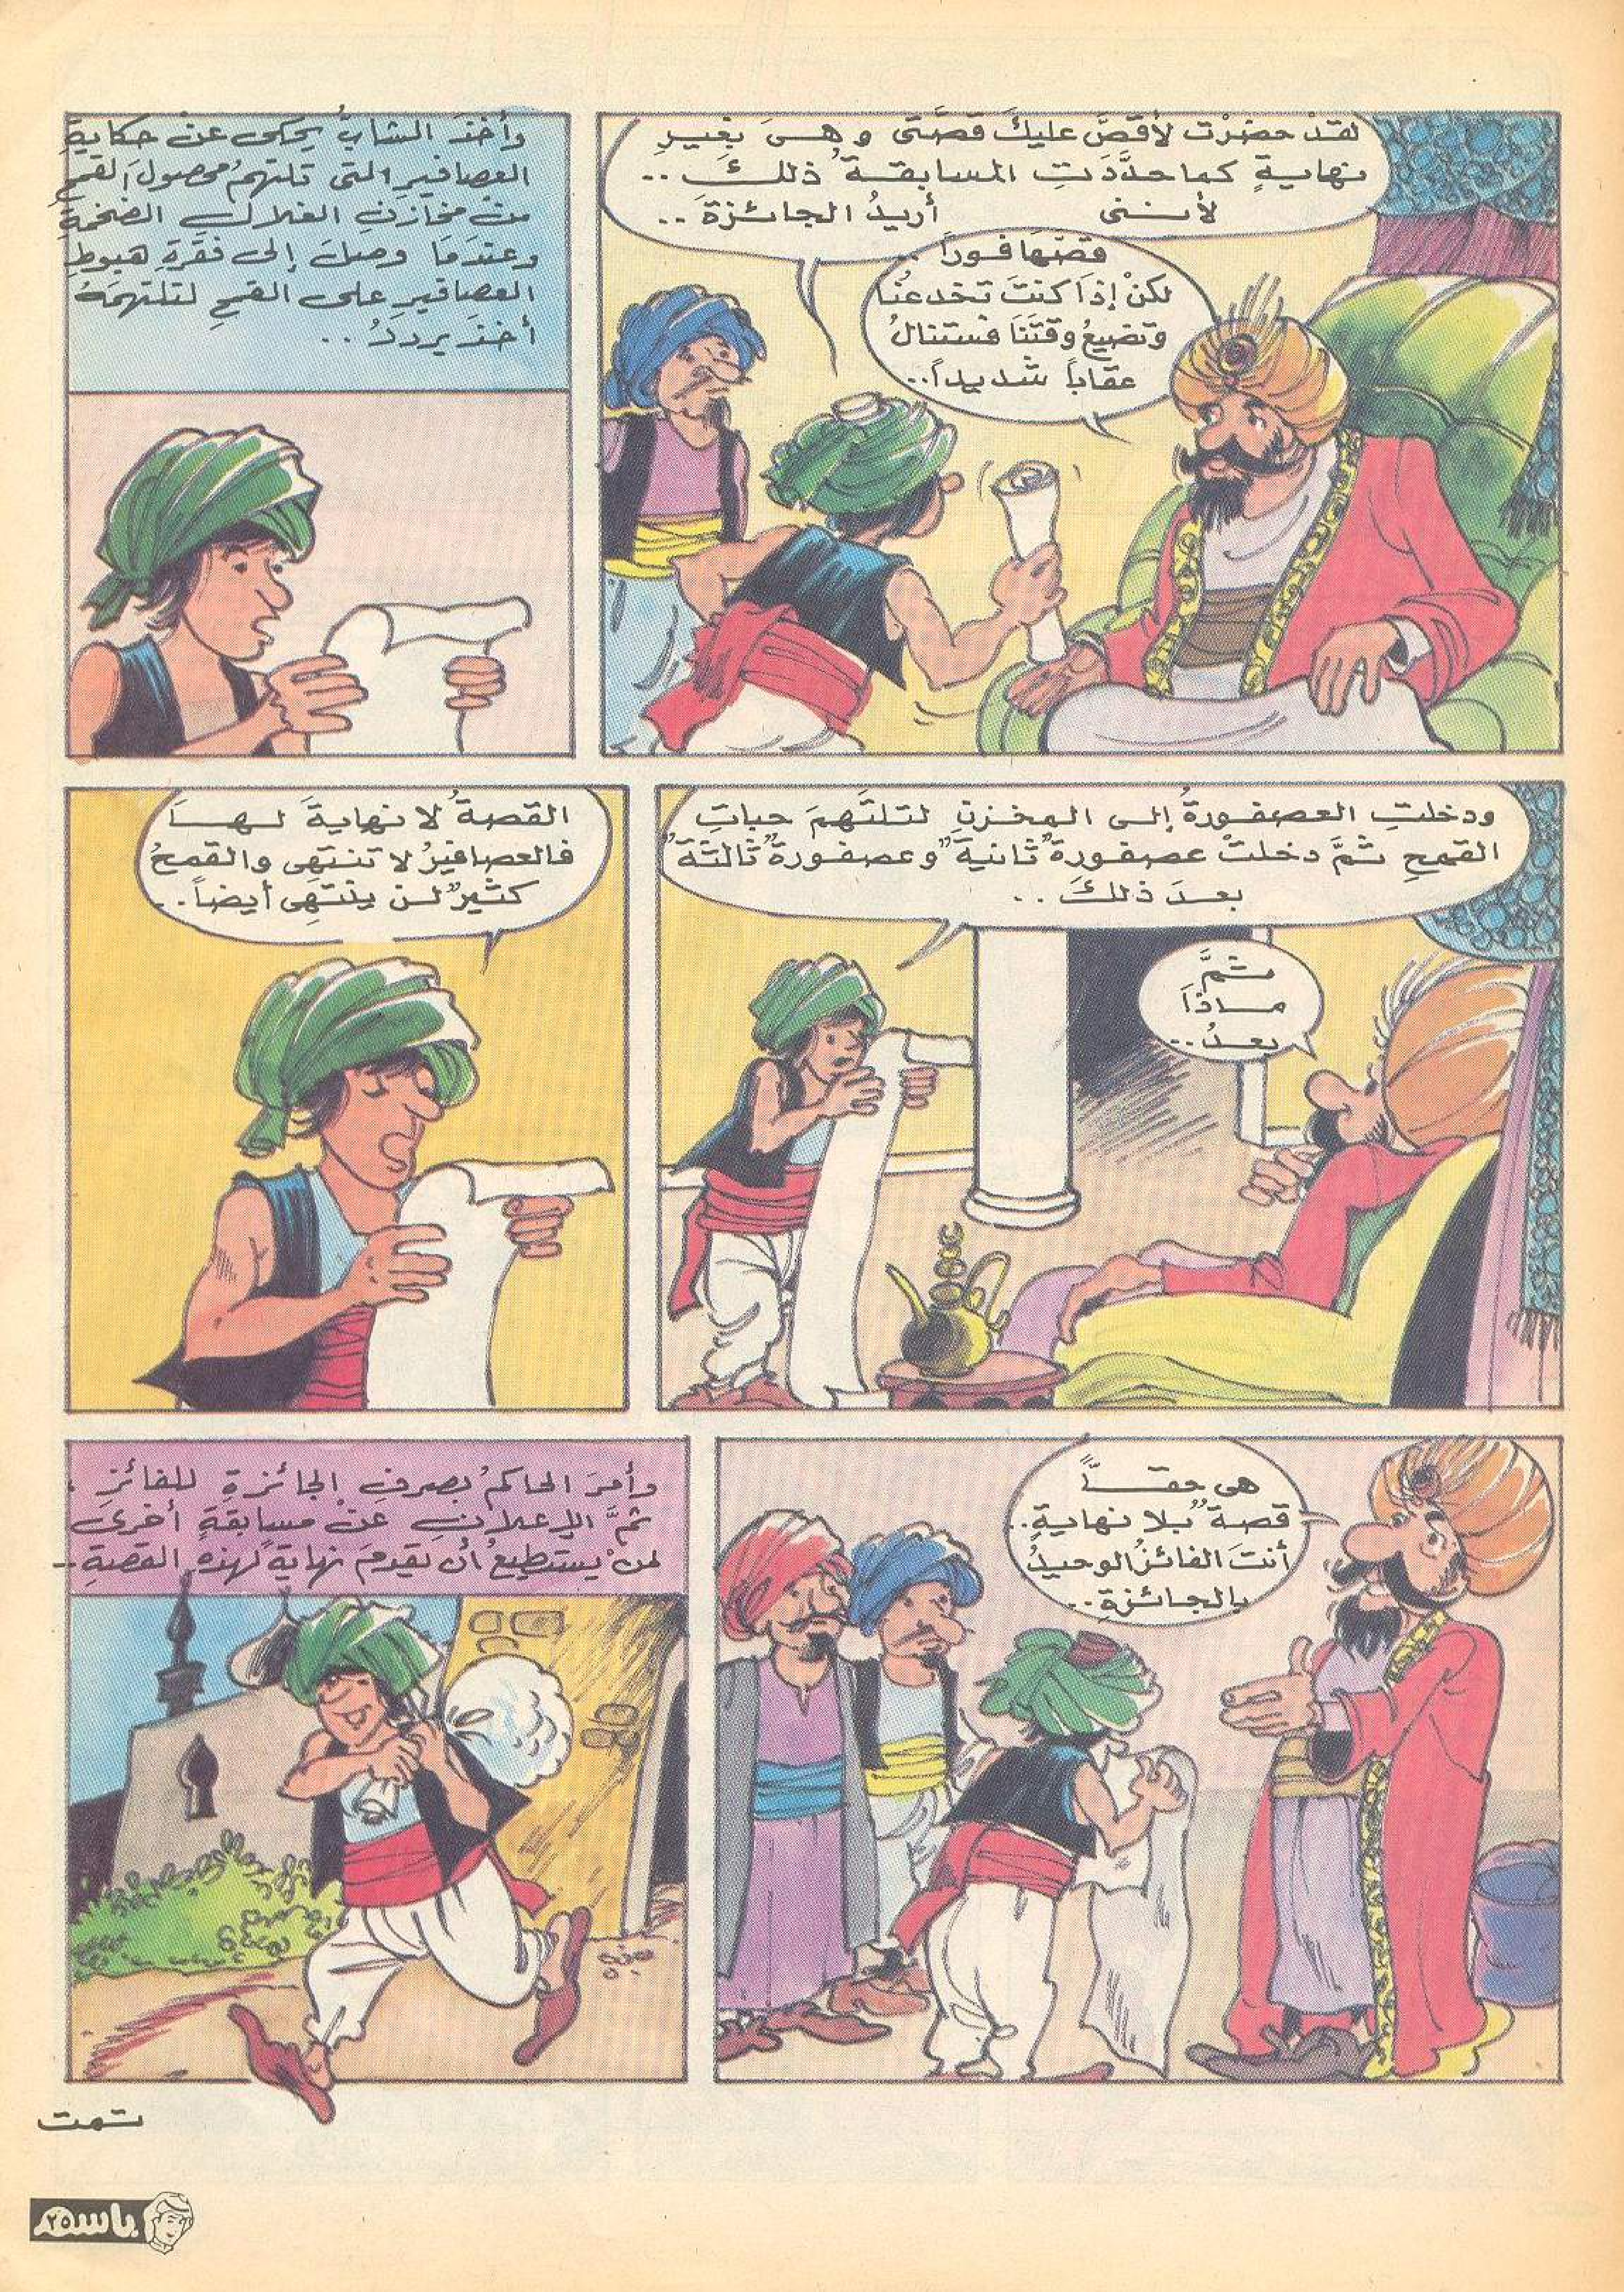 لقدْ حضرْت لأقصَّ عليكَ قصَّتى وهىَ بغيرِ
نهايةٍ كما حدَّدَتِ المسابقةُ ذلكَ ..
لأننى أريدُ الجائزةَ ..
قصَّهَا فوراً ..
لكنْ إذَا كنتَ تخدعنُا
وتضيعُ وقتَنَا فستنالُ
عقاباً شديداً ..
وأخذَ الشابُّ يحكى عنْ حكايةِ
العصافيرِ التى تلتهمُ محصولَ القمحِ
منْ مخازنِ الغلالِ الضخمةِ
وعندَمَا وصلَ إلى فقرةِ هبوطِ
العصافيرِ على القمحِ لتلتهمَهُ
أخذَ يرددُ ..
ودخلتِ العصفورةُ إلى المخزنِ لتلتَهمَ حباتِ
القمحِ ثمَّ دخلتْ عصفورةٌ ثانيةٌ وعصفورةٌ ثالثةٌ
بعدَ ذلكَ ..
ثمَّ
ماذَا
بعدُ ..
القصةُ لا نهايةَ لهَا
فالعصافيرُ لا تنتهى والقمحُ
كثيرٌ لن ينتهِى أيضاً ..
هى حقَّاً
قصةٌ بلا نهايةٍ ..
أنتَ الفائزُ الوحيدُ
بالجائزةِ ..
وأمرَ الحاكمُ بصرفِ الجائزةِ للفائزِ .
ثمَّ الإعلانِ عنْ مسابقةٍ أخرىَ
لمنْ يستطيعُ أنْ يقدمَ نهايةً لهذهِ القصةِ ..
تمت
باسم
٢٥